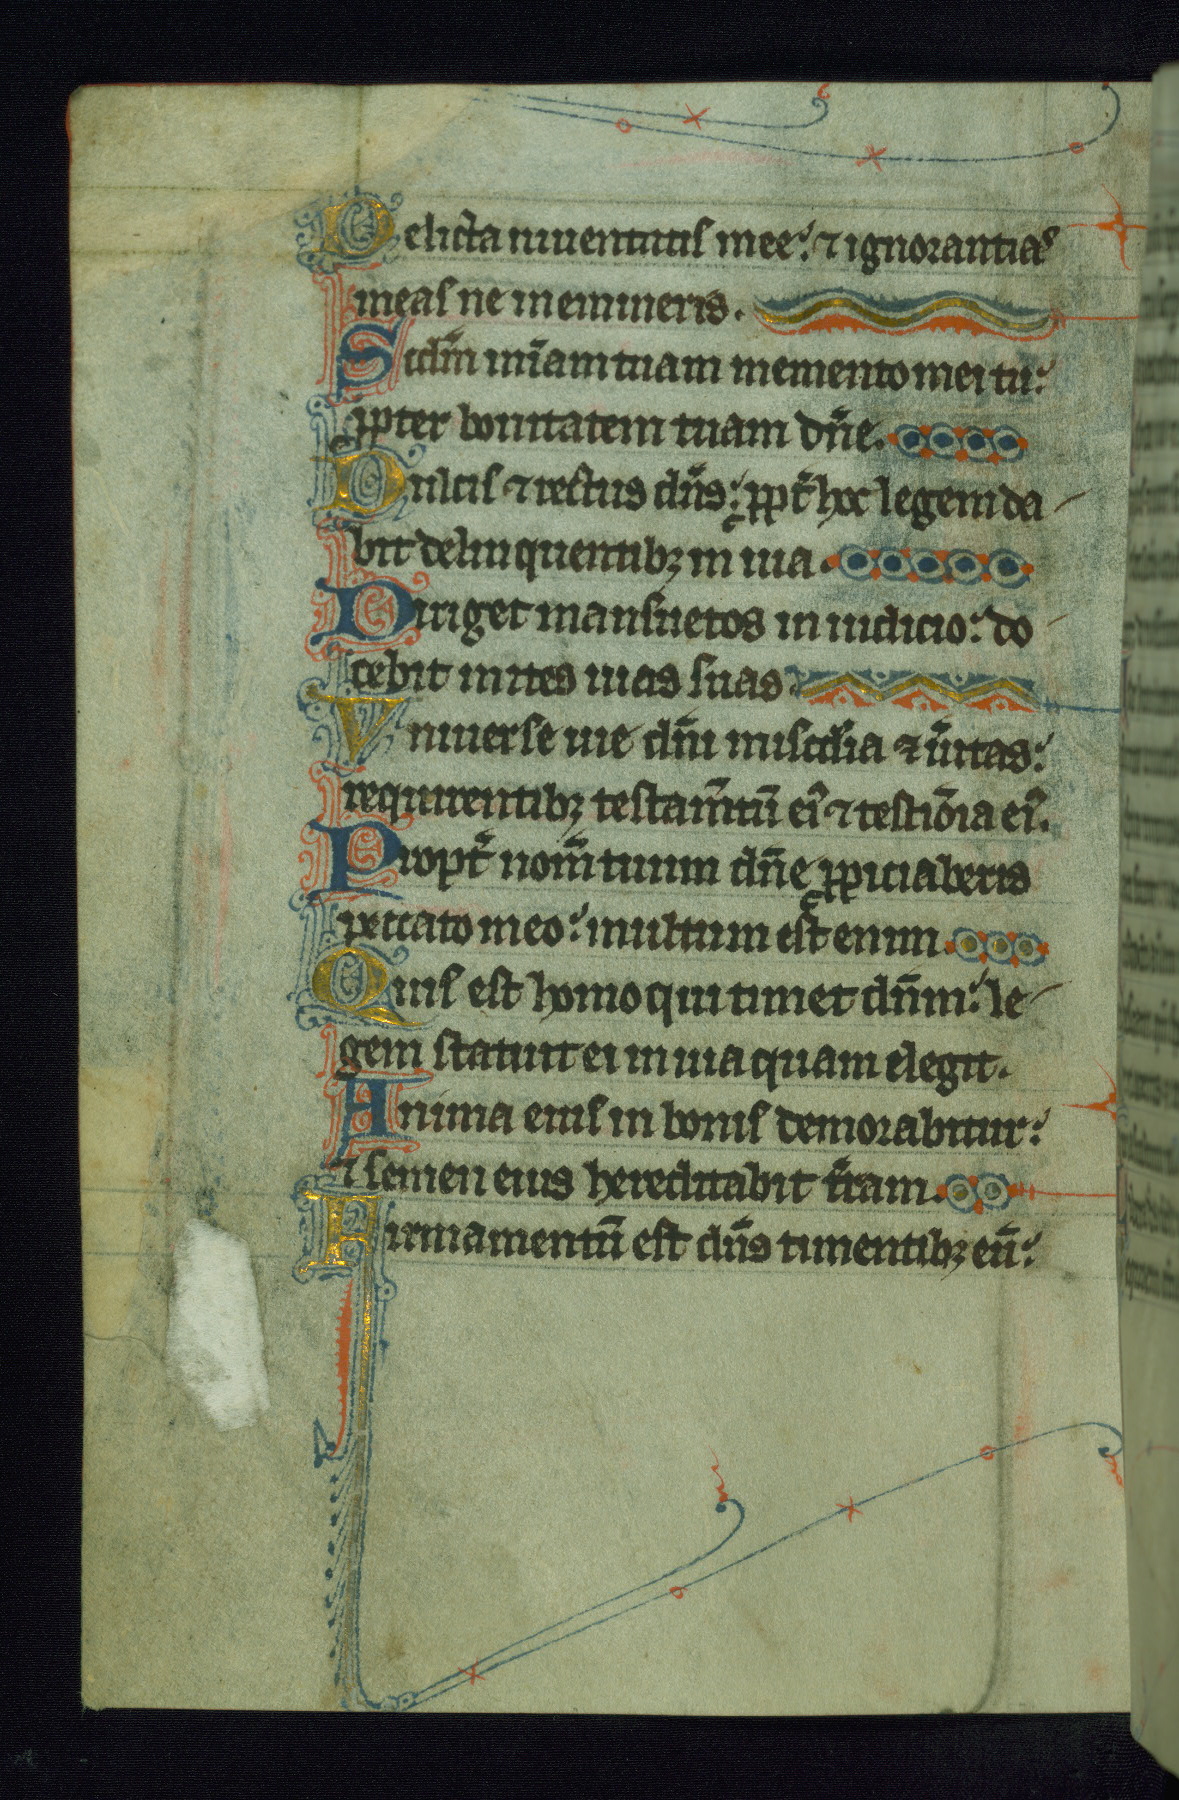 Delicta iuuentutis mee: ⁊ ignorantias
meas ne memineris.
Scdm̄ mīam tuam memento mei tu:
ꝓpter bonitatem tuam dn̄e.
Dulcis ⁊ rectus dn̄s: ꝓpt̄ hoc legem da-
bit delinquentibꝫ in uia.
Diriget mansuetos in iudicio: do-
cebit mites uias suas.
Vniuerse uie dn̄i misc̄dia ⁊ ūitas:
requirentibꝫ testam̄tū eiꝰ ⁊ testiōia eiꝰ.
Propt̄ nom̄ tuum dn̄e ꝓpiciaberis
peccato meo: multum est enim.
Quis est homo qui timet dn̄m: le-
gem statuit ei in uia quam elegit.
Anima eius in bonis demorabitur:
⁊ semen eius hereditabit t̄ram.
Firmamentū est dn̄s timentibꝫ eū: